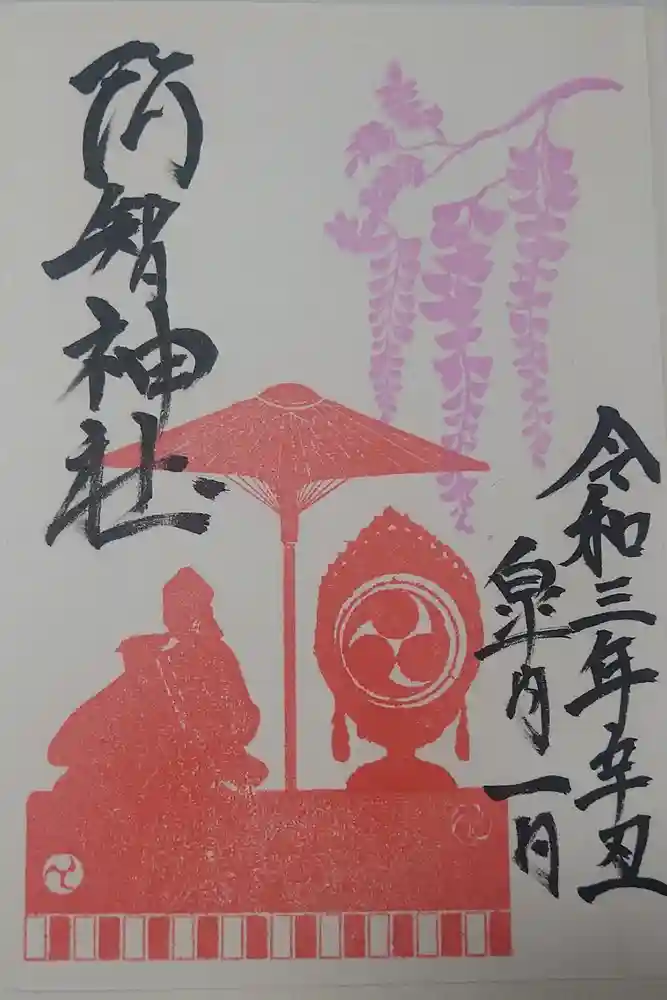 令和三年辛丑
皐月一日
阿智神社